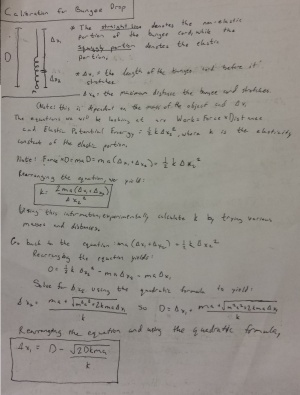 Calibration for Bungee Drop
D
Δx₁
Δx₂
* The straight line denotes the non-elastic
portion of the bungee cord, while the
squiggly portion denotes the elastic
portion.
* Δx₁ = the length of the bungee cord before it
stretches
Δx₂ = the maximum distance the bungee cord stretches.
(Note: this is dependent on the mass of the object and Δx₁
The equations we will be looking at are Work = Force × Distance
and Elastic Potential Energy = ½ k Δx₂², where k is the elasticity
constant of the elastic portion.
Note: Force × D = ma D = ma (Δx₁ + Δx₂) = ½ k Δx₂²
Rearranging the equation, we yield:
k = 2ma(Δx₁ + Δx₂) / Δx₂²
Using this information, experimentally calculate k by trying various
masses and distances.
Go back to the equation: ma (Δx₁ + Δx₂) = ½ k Δx₂²
Rearranging the equation yields:
0 = ½ k Δx₂² - ma Δx₂ - ma Δx₁
Solve for Δx₂ using the quadratic formula to yield:
Δx₂ = ma + √m²a² + 2kmaΔx₁ / k
D = Δx₁ + ma + √m²a² + 2kmaΔx₁ / k
Rearranging the equation and using the quadratic formula,
Δx₁ = D - √2Dkma / k